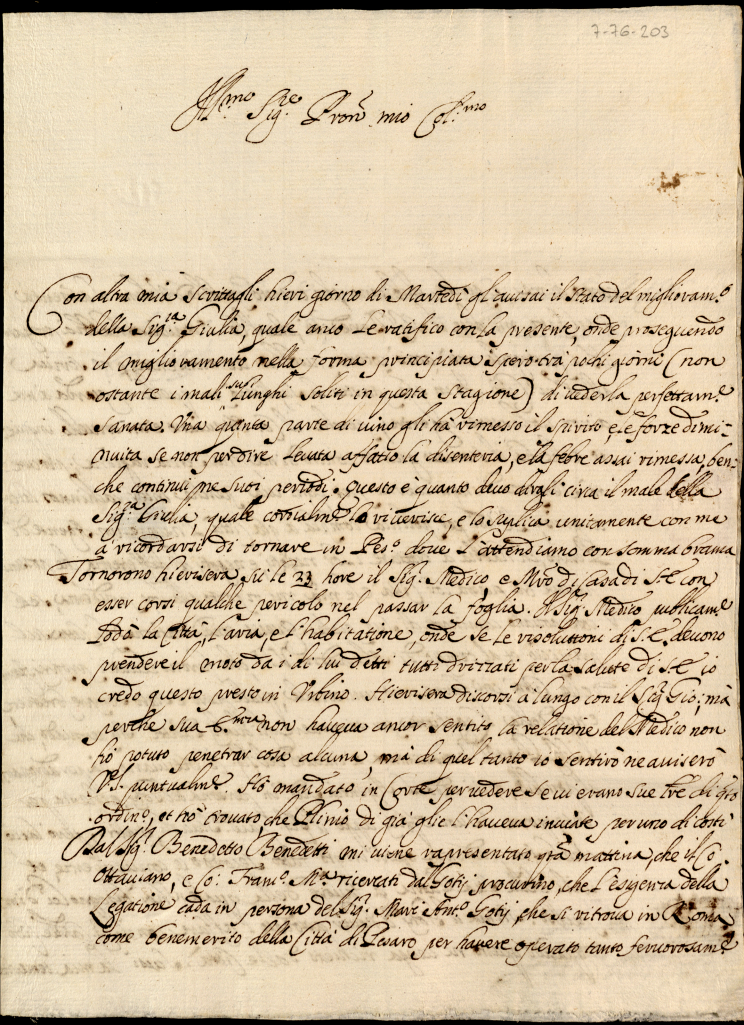 7-76-203
Ill.mo Sig.re Pron' mio Col.mo
Con altra mia scrittagli hieri giorno di Martedì gli auisai il stato del miglioram.o
della Sig.ra Giulia, quale anco le ratifico con la presente, onde proseguendo
il miglioramento nella forma principiata spero trà pochi giorni (non
ostante i mali sup.i lunghi soliti in questa stagione) di uederla perfettam.e
sanata. Una quarta parte di uino gli hà rimesso il spirito, e le forze dimi=
nuita se non per dire leuata affatto la disenteria, e la febre assai rimessa, ben=
che continui ne suoi periodi. Questo è quanto deuo dirgli circa il male della
Sig.ra Giulia, quale cordialm.e lo riuerisce, e lo suplica unitamente con me
à ricordarsi di tornare in Pes.o doue l'attendiamo con somma brama
Tornorono hierisera, sù le 23 hore il Sig.r Medico e Mro di Casa di S.E. con
esser corsi qualche pericolo nel passar la foglia. Il Sig.r Medico publicam.e
loda la Città, l'aria, e l'habitatione, onde se le risoluttoni di S.E. deuono
prendere il moto da i di lui detti tutti drizzati per la salute di S.E. io
credo questo presto in Urbino. Hierisera discorsi à lungo con il Sig.r Gio:, mà
perche sua E.nza non haueua ancor sentito la relatione del Medico non
hò potuto penetrar cosa alcuna, mà di quel tanto io sentirò ne auiserò
V.S. puntualm.e. Hò mandato in Corte per uedere se ui erano sue lre di q.sto
ordin.o, et hò trouato, che Plinio di già glie l'haueua inuiate per uno di costì
Dal Sig.r Benedetto Benedetti mi uiene rapresentato q.sta mattina, che il Co.
Ottauiano, e Co: Fran.co M.a ricercati dal Gotij procurino, che l'esigenza della
Legatione cada in persona del Sig.r Marc' Ant.o Gotij, che si ritroua in Roma
come benemerito della Città di Pesaro per hauere operato tanto feruorosam.e